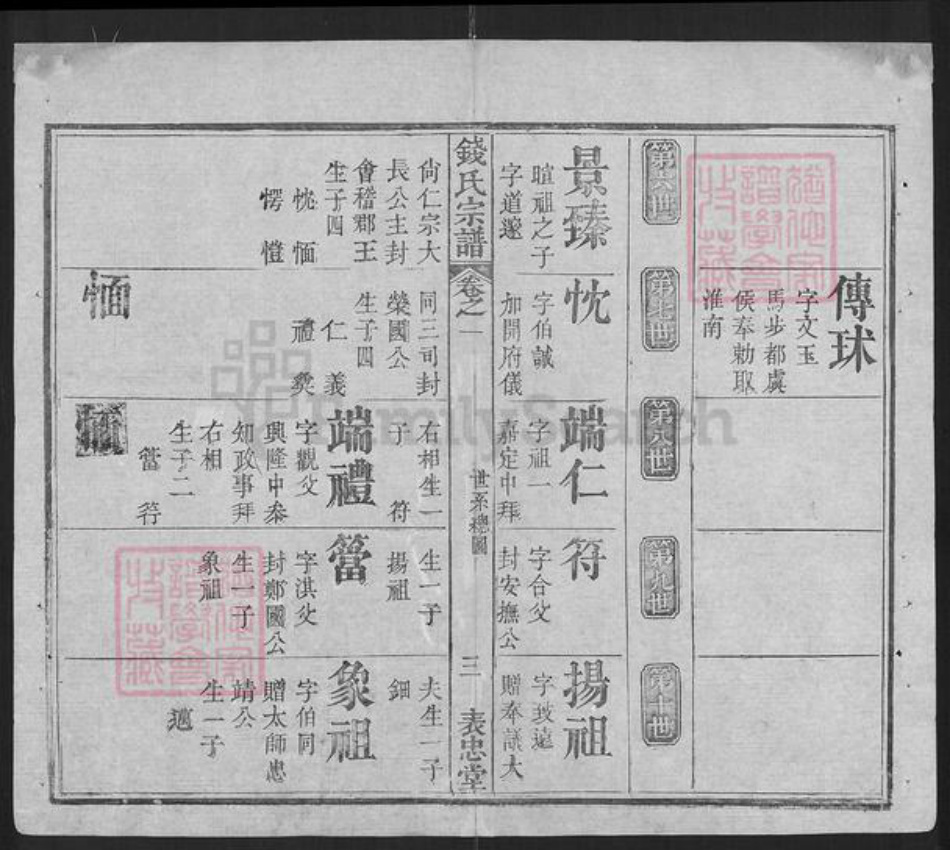 傳球
字文玉
馬步都虞
侯奉勅取
淮南
第六世
第七世
第八世
第九世
第十世
景臻
暄祖之子
字道邃
忱
字伯誠
加開府儀
端仁
字祖一
嘉定中拜
符
字合父
封安撫公
揚祖
字玻遠
贈奉議大
錢氏宗譜
卷之一
世系總圖
三
表忠堂
尙仁宗大
長公主封
會稽郡王
生子四
忱 愐
愕 愷
同三司封
榮國公
生子四
仁 義
禮
右相生一
子 符
生一子
揚祖
夫生一子
鈿
端禮
字觀父
興隆中叅
知政事拜
右相
生子二
簹 符
簹
字淇父
封鄭國公
生一子
象祖
象祖
字伯同
贈太師忠
靖公
生一子
愐
FamilySearch